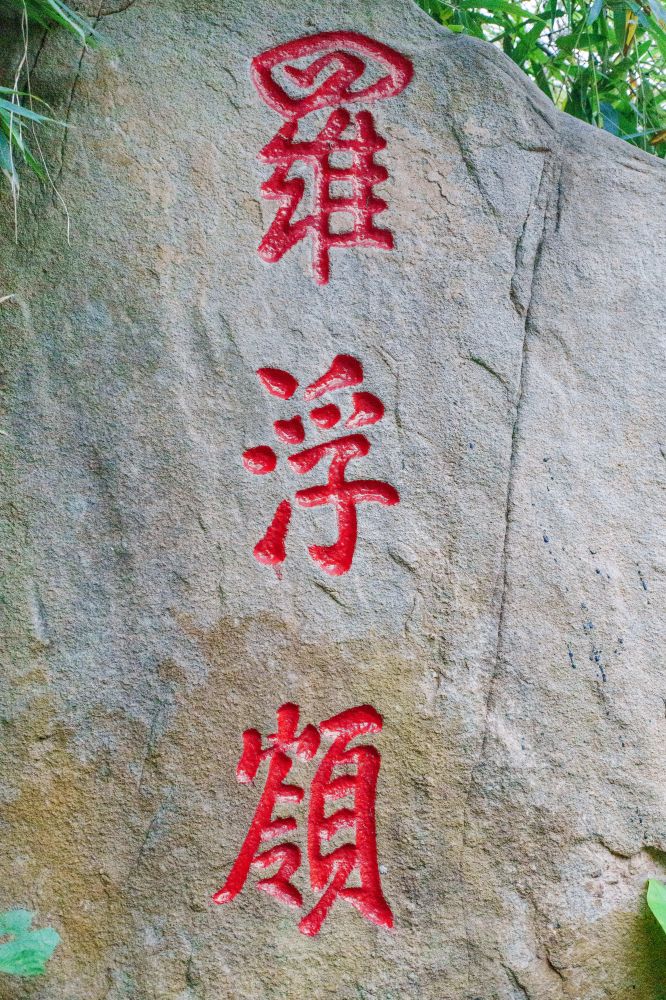 羅浮嶺